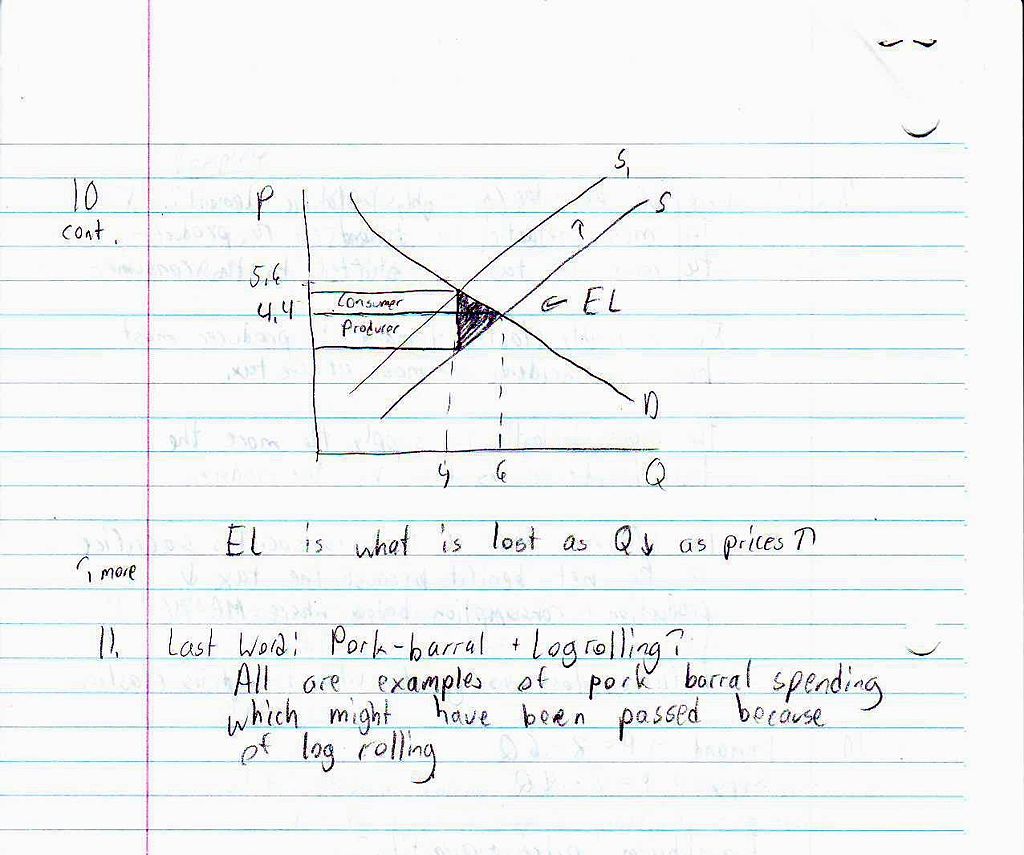 10
cont.
P
S₁
S
5.6
4.4
Consumer
Producer
← EL
D
4
6
Q
EL is what is lost as Q↓ as prices ↑
↑ more
11. Last Word: Pork-barral + Logrolling?
All are examples of pork barral spending
which might have been passed because
of log rolling